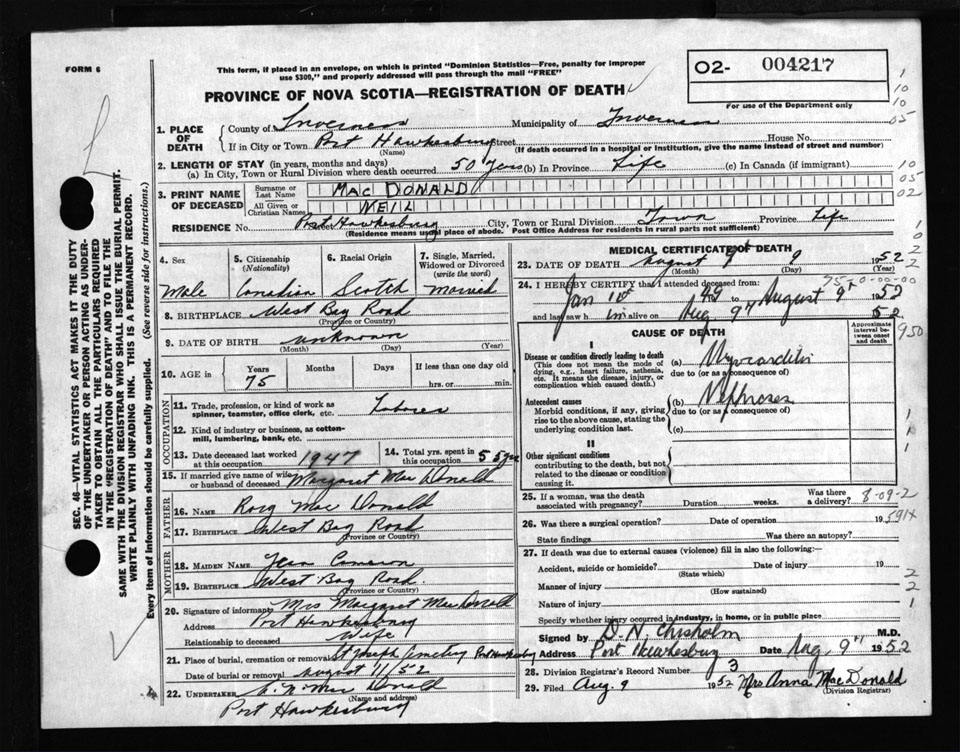 FORM 6
This form, if placed in an envelope, on which is printed "Dominion Statistics—Free, penalty for improper
use $300," and properly addressed will pass through the mail "FREE"
PROVINCE OF NOVA SCOTIA—REGISTRATION OF DEATH
O2- 004217
For use of the Department only
1. PLACE OF DEATH
County of Inverness Municipality of Inverness
If in City or Town Port Hawkesbury Street House No.
(Name) (If death occurred in a hospital or institution, give the name instead of street and number)
2. LENGTH OF STAY (in years, months and days)
(a) In City, Town or Rural Division where death occurred 50 years (b) In Province Life (c) In Canada (if immigrant)
3. PRINT NAME OF DECEASED
Surname or Last Name MAC DONALD
All Given or Christian Names NEIL
RESIDENCE No. Street Port Hawkesbury City, Town or Rural Division Town Province Life
(Residence means usual place of abode. Post Office Address for residents in rural parts not sufficient)
4. Sex
5. Citizenship (Nationality)
6. Racial Origin
7. Single, Married, Widowed or Divorced (write the word)
Male Canadian Scotch married
8. BIRTHPLACE West Bay Road
(Province or Country)
9. DATE OF BIRTH unknown
(Month) (Day) (Year)
10. AGE in Years Months Days If less than one day old
75 hrs. or min.
OCCUPATION
11. Trade, profession, or kind of work as spinner, teamster, office clerk, etc. Laborer
12. Kind of industry or business, as cotton-mill, lumbering, bank, etc.
13. Date deceased last worked at this occupation 1947
14. Total yrs. spent in this occupation 55 yrs
15. If married give name of wife or husband of deceased Margaret Mac Donald
FATHER
16. NAME Rory Mac Donald
17. BIRTHPLACE West Bay Road
(Province or Country)
MOTHER
18. MAIDEN NAME Cameron
19. BIRTHPLACE West Bay Road.
(Province or Country)
20. Signature of informant Mrs Margaret Mac Donald
Address Port Hawkesbury
Relationship to deceased Wife
21. Place of burial, cremation or removal St Joseph Cemetery Port Hawkesbury
Date of burial or removal August 11/52
22. UNDERTAKER Donald
(Name and address)
Port Hawkesbury
MEDICAL CERTIFICATE OF DEATH
23. DATE OF DEATH August 9th 9 1952
(Month) (Day) (Year)
24. I HEREBY CERTIFY that I attended deceased from:
Jan 1st 19 to August 9th 1952
and last saw h im alive on Aug. 9th 52
CAUSE OF DEATH
Approximate interval between onset and death
I
Disease or condition directly leading to death
(This does not mean the mode of dying, e.g., heart failure, asthenia, etc. It means the disease, injury, or complication which caused death.)
(a) Myocarditis
due to (or as a consequence of)
Antecedent causes
Morbid conditions, if any, giving rise to the above cause, stating the underlying condition last.
(b) Nephroses
due to (or as a consequence of)
(c)
II
Other significant conditions
contributing to the death, but not related to the disease or condition causing it.
25. If a woman, was the death associated with pregnancy? Duration weeks. Was there a delivery? 8-09-2
26. Was there a surgical operation? Date of operation 19
State findings Was there an autopsy?
27. If death was due to external causes (violence) fill in also the following:—
Accident, suicide or homicide? Date of injury 19
(State which)
Manner of injury
(How sustained)
Nature of injury
Specify whether injury occurred in industry, in home, or in public place
Signed by D. N. Chisholm M.D.
Address Port Hawkesbury Date Aug. 9th 1952
28. Division Registrar's Record Number 3
29. Filed Aug. 9 1952 Mrs Anna MacDonald
(Division Registrar)
SEC. 46—VITAL STATISTICS ACT MAKES IT THE DUTY
OF THE UNDERTAKER OR PERSON ACTING AS UNDER-
TAKER TO OBTAIN ALL THE PARTICULARS REQUIRED
IN THE "REGISTRATION OF DEATH" AND TO FILE THE
SAME WITH THE DIVISION REGISTRAR WHO SHALL ISSUE THE BURIAL PERMIT.
WRITE PLAINLY WITH UNFADING INK. THIS IS A PERMANENT RECORD.
Every item of information should be carefully supplied. (See reverse side for instructions.)